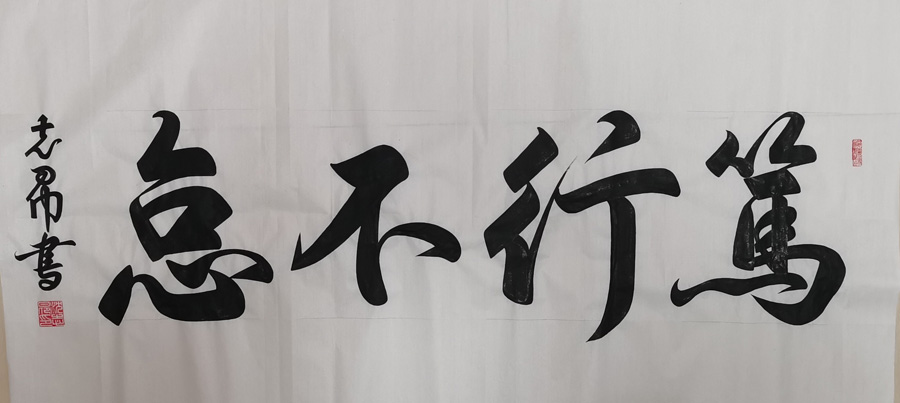 篤行不怠
志 書